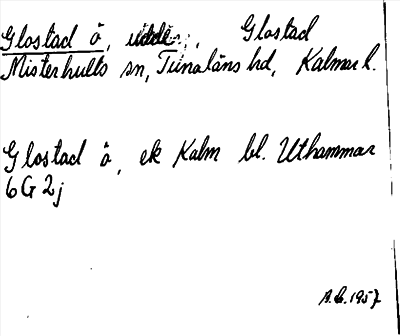 Glostad ö, udde, Glostad
Misterhults sn, Tunaläns hd, Kalmar l.
Glostad ö, ek Kalm bl. Uthammar
6G2j
A.B. 1957